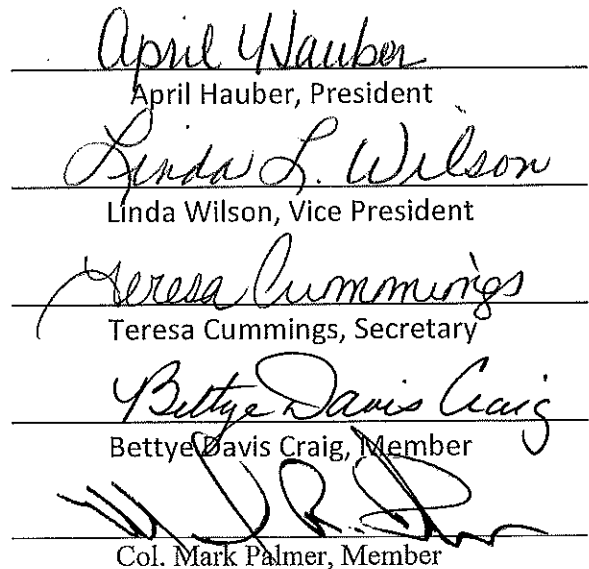 April Hauber
April Hauber, President
Linda L. Wilson
Linda Wilson, Vice President
Teresa Cummings
Teresa Cummings, Secretary
Bettye Davis Craig
Bettye Davis Craig, Member
Col. Mark Palmer, Member